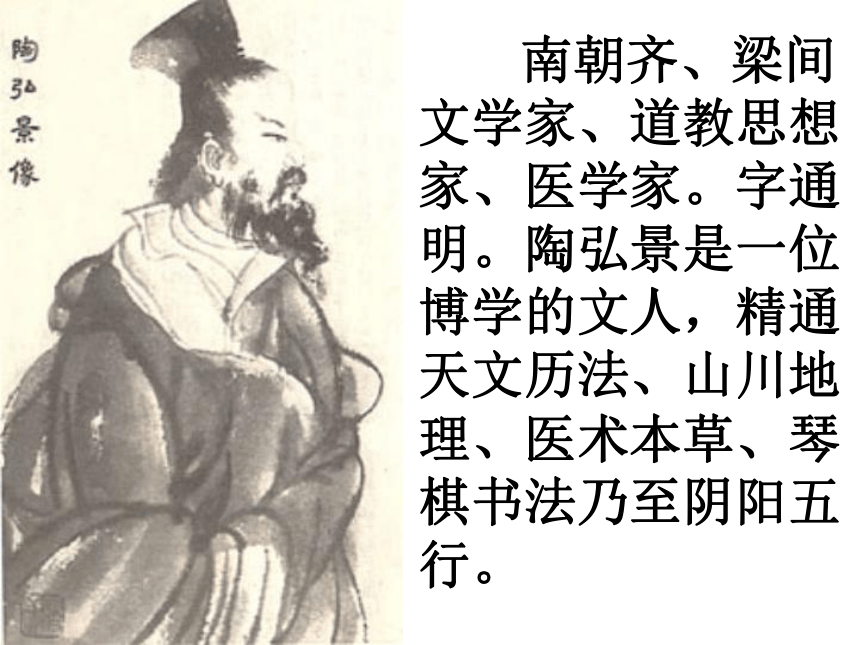 陶弘景像
南朝齐、梁间
文学家、道教思想
家、医学家。字通
明。陶弘景是一位
博学的文人，精通
天文历法、山川地
理、医术本草、琴
棋书法乃至阴阳五
行。